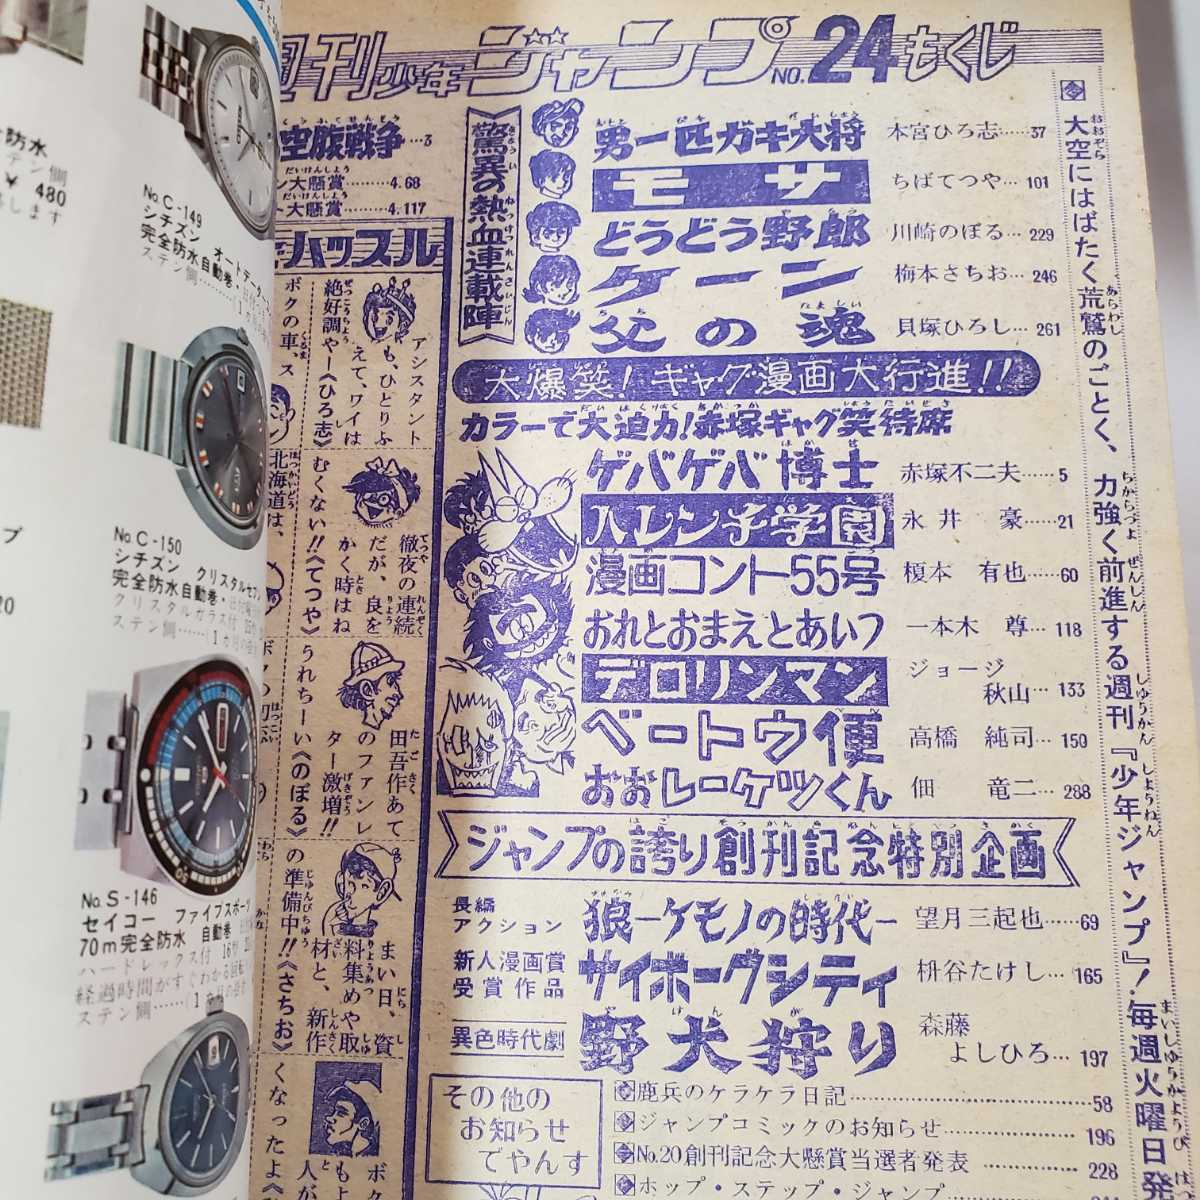 週刊少年ジャンプ NO.24 もくじ
驚異の熱血連載陣
男一匹ガキ大将 本宮ひろ志……37
モサ ちばてつや…101
どうどう野郎 川崎のぼる…229
ケーン 梅本さちお…246
父の魂 貝塚ひろし…261
大爆笑!ギャグ漫画大行進!!
カラーで大迫力!赤塚ギャグ笑待席
ゲバゲバ博士 赤塚不二夫……5
ハレンチ学園 永井 豪…21
漫画コント55号 榎本 有也…60
おれとおまえとあいつ 一本木 尊…118
デロリンマン ジョージ秋山…133
ベートウ便 高橋 純司…150
おおレーケツくん 佃 竜二…288
ジャンプの誇り創刊記念特別企画
長編アクション 狼－ケモノの時代－ 望月三起也……69
新人漫画賞受賞作品 サイボーグシティ 枡谷たけし…165
異色時代劇 野犬狩り 森藤よしひろ…197
その他の
お知らせ
でやんす
鹿兵のケラケラ日記……58
ジャンプコミックのお知らせ……196
No.20創刊記念大懸賞当選者発表……228
ホップ・ステップ・ジャンプ
大空にはばたく荒鷲のごとく、力強く前進する週刊『少年ジャンプ』!毎週火曜日発
空腹戦争…3
ン大懸賞………4.68
ト大懸賞………4.117
ハッスル
アシスタント
も、ひとりふ
えて、ワイは
絶好調や－《ひろ志》
ボクの車、ス
徹夜の連続
だが、良を
かく時はね
むくない!!《てつや》
北海道は、
田吾作あて
のファンレ
ター激増!!
うれちーい《のぼる》
まい日、資
料集めや取
材と、新作
の準備中!!《さちお》
ボク
もよ
人が
くなったよ《
防水
テン側
¥ 480
します
No.C-149
シチズン オートデーター
完全防水自動巻
ステン側
No.C-150
シチズン クリスタルセブン
完全防水自動巻
クリスタルガラス付
ステン側……(1カ月の
No.S-146
セイコー ファイブスポーツ
70m完全防水 自動巻
ハードレックス付
経過時間がすぐわかる回転
ステン側……(1カ月の